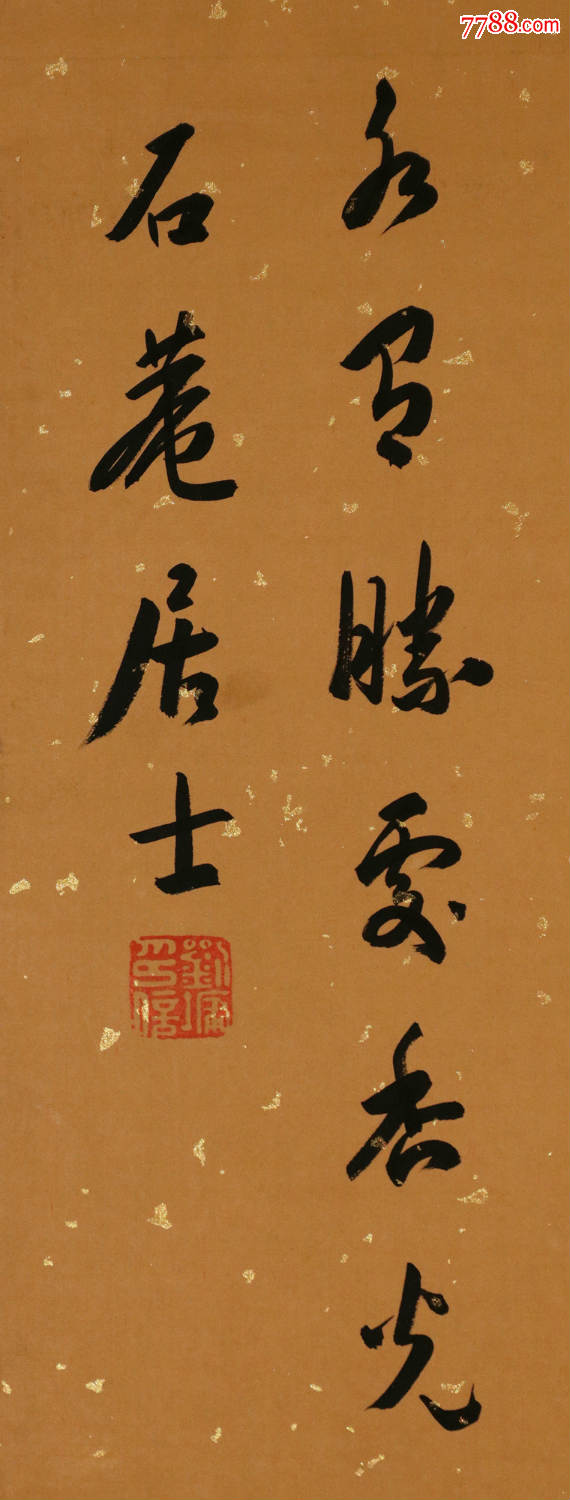 7788.com
勝 香光
石菴居士
劉墉
印信